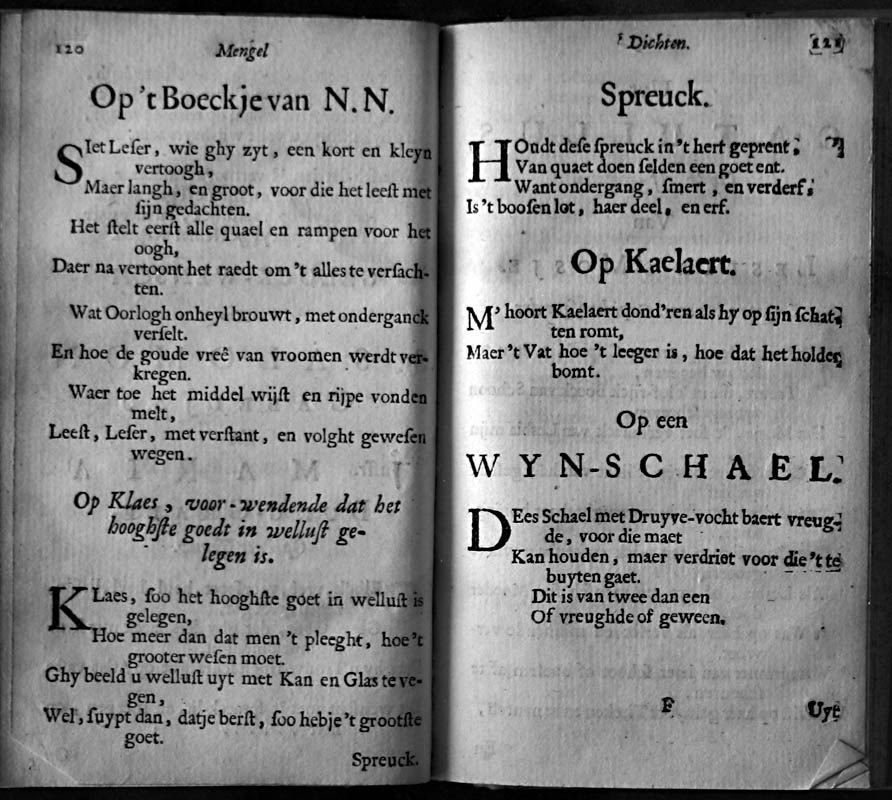 120 Mengel
Op 't Boeckje van N. N.
SIet Leſer, wie ghy zyt, een kort en kleyn
vertoogh,
Maer langh, en groot, voor die het leeſt met
ſijn gedachten.
Het ſtelt eerſt alle quael en rampen voor het
oogh,
Daer na vertoont het raedt om 't alles te verſach-
ten.
Wat Oorlogh onheyl brouwt, met onderganck
verſelt.
En hoe de goude vreê van vroomen werdt ver-
kregen.
Waer toe het middel wijſt en rijpe vonden
melt,
Leeſt, Leſer, met verſtant, en volght geweſen
wegen.
Op Klaes, voor-wendende dat het
hooghſte goedt in welluſt ge-
legen is.
KLaes, ſoo het hooghſte goet in welluſt is
gelegen,
Hoe meer dan dat men 't pleeght, hoe 't
grooter weſen moet.
Ghy beeld u welluſt uyt met Kan en Glas te ve-
gen,
Wel, ſuypt dan, datje berſt, ſoo hebje 't grootſte
goet.
Spreuck.
Dichten. 121
Spreuck.
HOudt deſe ſpreuck in 't hert geprent;
Van quaet doen ſelden een goet ent.
Want ondergang, ſmert, en verderf,
Is 't booſen lot, haer deel, en erf.
Op Kaelaert.
M' hoort Kaelaert dond'ren als hy op ſijn ſchat-
ten romt,
Maer 't Vat hoe 't leeger is, hoe dat het holder
bomt.
Op een
WYN-SCHAEL.
DEes Schael met Druyve-vocht baert vreug-
de, voor die maet
Kan houden, maer verdriet voor die 't te
buyten gaet.
Dit is van twee dan een
Of vreughde of geween.
F Uyt